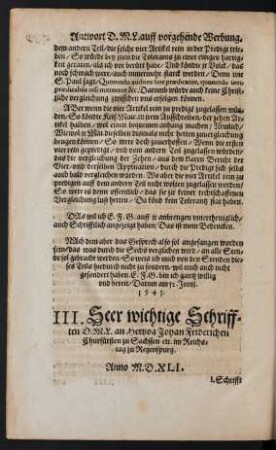 Antwort D. M. L. auff vorgehende Werbung.
dem andern Teil / die solche vier Artikel rein in der Predigt trie-
ben / So würde
geraten / als ich vor berürt habe / Und köndte je Volck / das
noch schwach were / auch nimermehr starck werden / Denn wie
S. Paul sagt / Quomodo audient sine praedicante, quomodo
praedicabunt nisi mittantur etc. Darumb würde auch keine Christ-
liche vergleichung zwisschen uns erfolgen können.
Aber wenn die vier Artikel rein zu predigt zugelassen wür-
den / So köndte Keis. Maie. im
tikel halben / wol einen bequemen anhang machen / Nemlich /
Wiewol je Mai. dieselben dismals nicht hetten zu uergleichung
brengen können / So were doch zuuerhoffen / Wenn die ersten
vier rein gepredigt / und von andern Teil zugelassen würden /
das die vergleichung der Zehen / aus dem klaren Bericht der
Vier / und derselben Application / durch die Predigt sich selbs
auch bald vergleichen würden. Wo aber die vier Artikel rein zu
predigen auff dem andern Teil nicht wolten zugelassen werden /
So were es denn offentlich / das sie zur keiner rechtschaffenen
Vergleichung lust hetten / Da künd kein Tolerantz stat haben.
DAs wil ich E. F. G. auff jr anbrengen unterthenigklich /
auch Schrifftlich angezeigt haben / Das ist mein Bedencken.
NAch dem aber das Gesprech also sol angefangen worden
sein / das was durch die Sechs verglichen wird / an alle Sten-
de sol gebracht werden / So weis ich mich von den Stenden die-
ses Teils hiedurch nicht zu sondern / wil mich auch nicht
gesondert haben. E. F. G. bin ich gantz willig
und bereit. Datum am 12. Junij.
1541.
III. Seer wichtige Schriff-
ten D. M. L. an Hertzog Johan Friderichen
Churfürsten zu Sachssen etc. im Reichs-
tag zu Regenspurg.
Anno M. D. XLI.
I. Schrifft